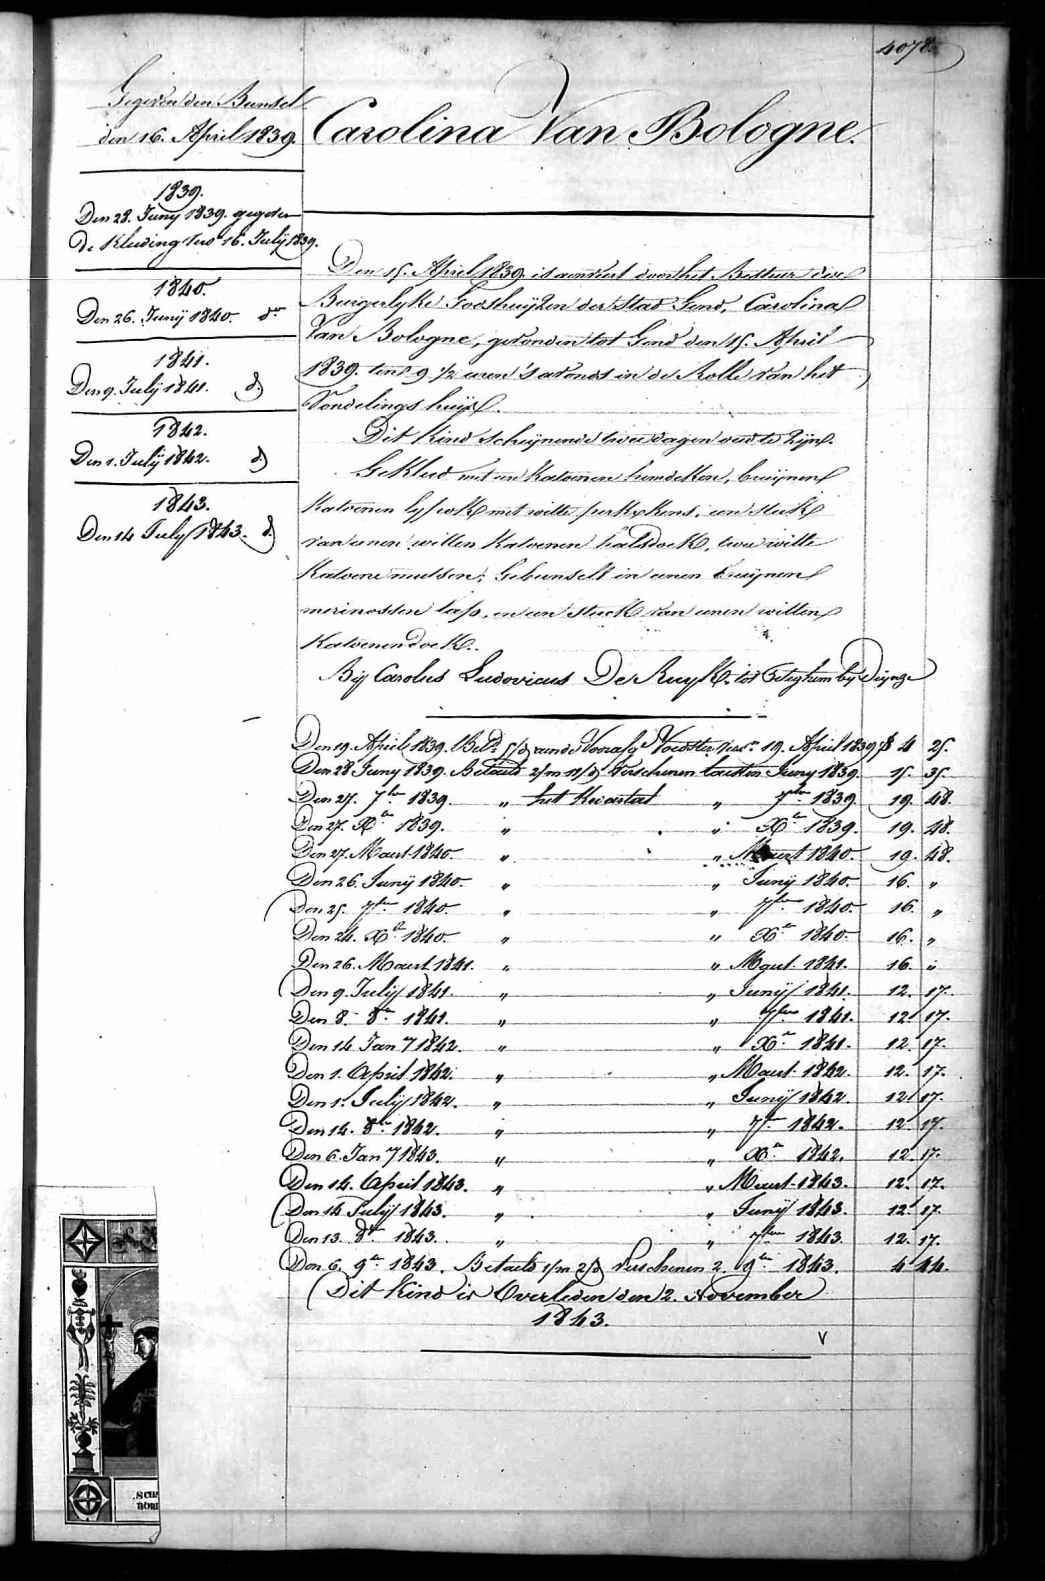 4078.
Gegeven den Bunsel
den 16. April 1839.
1839.
Den 28. Junij 1839. gegeven
de Kleeding vers 16. Julij 1839.
1840.
Den 26. Junij 1840. do
1841.
Den 9. Julij 1841. d.
1842.
Den 1. Julij 1842. d.
1843.
Den 14 July 1843. d.
Carolina Van Bologne.
Den 15. April 1839 is aenveert door het Bestuer der
Burgerlyke Godshuijzen der Stad Gend, Carolina
Van Bologne, gevonden tot Gend den 15. April
1839. tend 9 1/2 uren 's avonds in de Rolle van het
Vondelings huijs.
Dit Kind schynende twee dagen oud te zijn.
Gekleed met een Katoenen hemdeken, bruijnen
Katoenen lyfrok met witte perkxkens, een stuk
van eenen witten Katoenen halsdoek, twee witte
Katoene mutsen; Gebunselt in eenen bruijnen
merinossen lap, en een stuck van eenen witten
Katoenen doek.
Bij Carolus Ludovicus De Ruyck tot by Deijnze
Den 19. April 1839. Vers 19. April 1839 4 25.
Den 28 Juny 1839. Betaeld 2/m 11/d Verschenen laesten Juny 1839. 15. 35.
Den 27. 7ber 1839. " het Kwartael " 7ber 1839 19. 48.
Den 27. Xber 1839. " " Xber 1839. 19. 48.
Den 27. Maert 1840. " " Maert 1840. 19. 48.
Den 26. Junij 1840. " " Junij 1840. 16. "
Den 25. 7ber 1840. " " 7ber 1840. 16. "
Den 24. Xber 1840. " " Xber 1840. 16. "
Den 26. Maert 1841. " " Maert 1841. 16. "
Den 9. Julij 1841. " " Junij 1841. 12. 17.
Den 8. 8ber 1841. " " 7ber 1841. 12. 17.
Den 14 Jany 1842. " " Xber 1841. 12. 17.
Den 1. April 1842. " " Maert 1842. 12. 17.
Den 1. Julij 1842. " " Junij 1842. 12. 17.
Den 14. 8ber 1842. " " 7ber 1842. 12. 17.
Den 6. Jany 1843. " " Xber 1842. 12. 17.
Den 14. April 1843. " " Maert 1843. 12. 17.
Den 14 Julij 1843. " " Junij 1843. 12. 17.
Den 13. 8ber 1843. " " 7ber 1843 12. 17.
Den 6. 9ber 1843. Betaeld 1/m 2/d Verschenen 2. 9ber 1843. 4 44.
Dit Kind is Overleden den 2. November
1843.
V